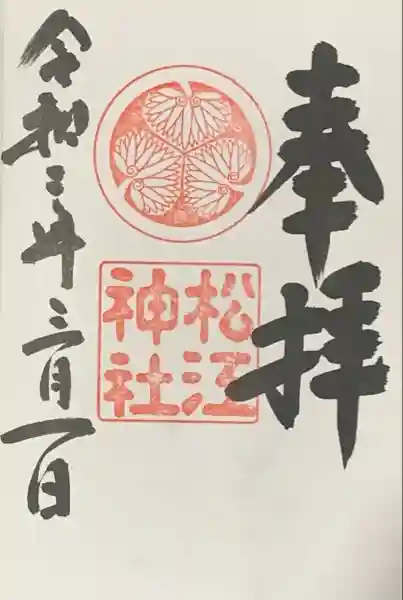 奉拝
松江
神社
令和三年三月一日